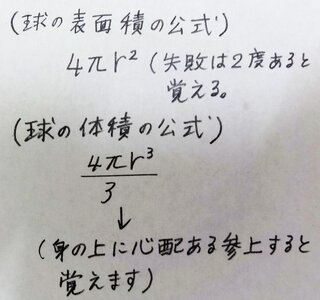 (球の表面積の公式)
4πr² (失敗は2度あると
覚える。
(球の体積の公式)
4πr³
3
↓
(身の上に心配ある参上すると
覚えます)